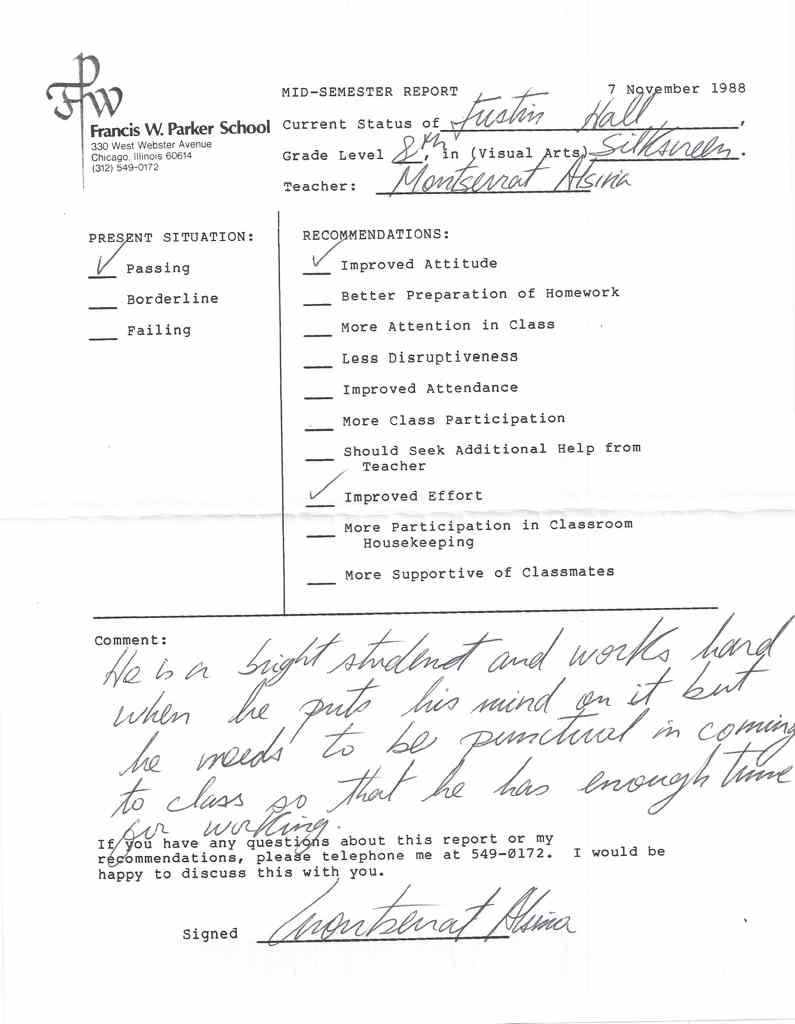 FWP
Francis W. Parker School
330 West Webster Avenue
Chicago, Illinois 60614
(312) 549-0172
MID-SEMESTER REPORT 7 November 1988
Current Status of Justin Hall,
Grade Level 8th, in (Visual Arts) Silkscreen.
Teacher: Montserrat Alsina
PRESENT SITUATION:
✓ Passing
___ Borderline
___ Failing
RECOMMENDATIONS:
✓ Improved Attitude
___ Better Preparation of Homework
___ More Attention in Class
___ Less Disruptiveness
___ Improved Attendance
___ More Class Participation
___ Should Seek Additional Help from
Teacher
✓ Improved Effort
___ More Participation in Classroom
Housekeeping
___ More Supportive of Classmates
Comment:
He is a bright student and works hard
when he puts his mind on it but
he needs to be punctual in coming
to class so that he has enough time
for working.
If you have any questions about this report or my
recommendations, please telephone me at 549-0172. I would be
happy to discuss this with you.
Signed Montserrat Alsina